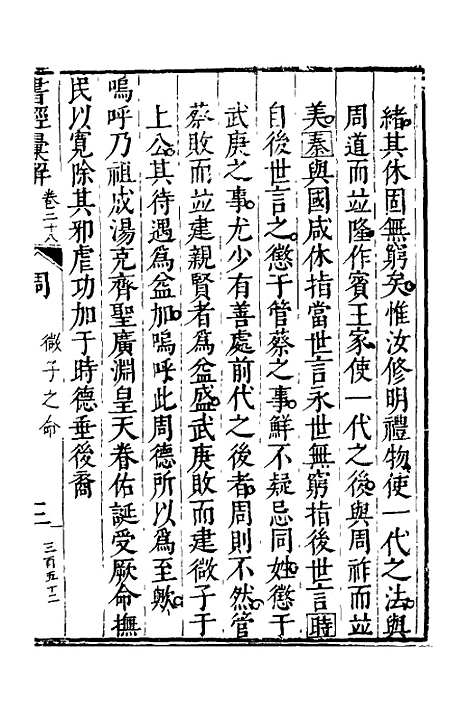 緒其休固無窮矣惟汝修明禮物使一代之法與
周道而並隆作賓王家使一代之後與周祚而並
美秦與國咸休指當世言永世無窮指後世言時
自後世言之懲于管蔡之事鮮不疑忌同姓懲于
武庚之事尤少有善處前代之後者周則不然管
蔡敗而並建親賢者為益盛武庚敗而建微子于
上公其待遇為益加嗚呼此周德所以為至歟
嗚呼乃祖成湯克齊聖廣淵皇天眷佑誕受厥命撫
民以寬除其邪虐功加于時德垂後裔
書經彙解 卷二十八 周 微子之命 二 三百五十二